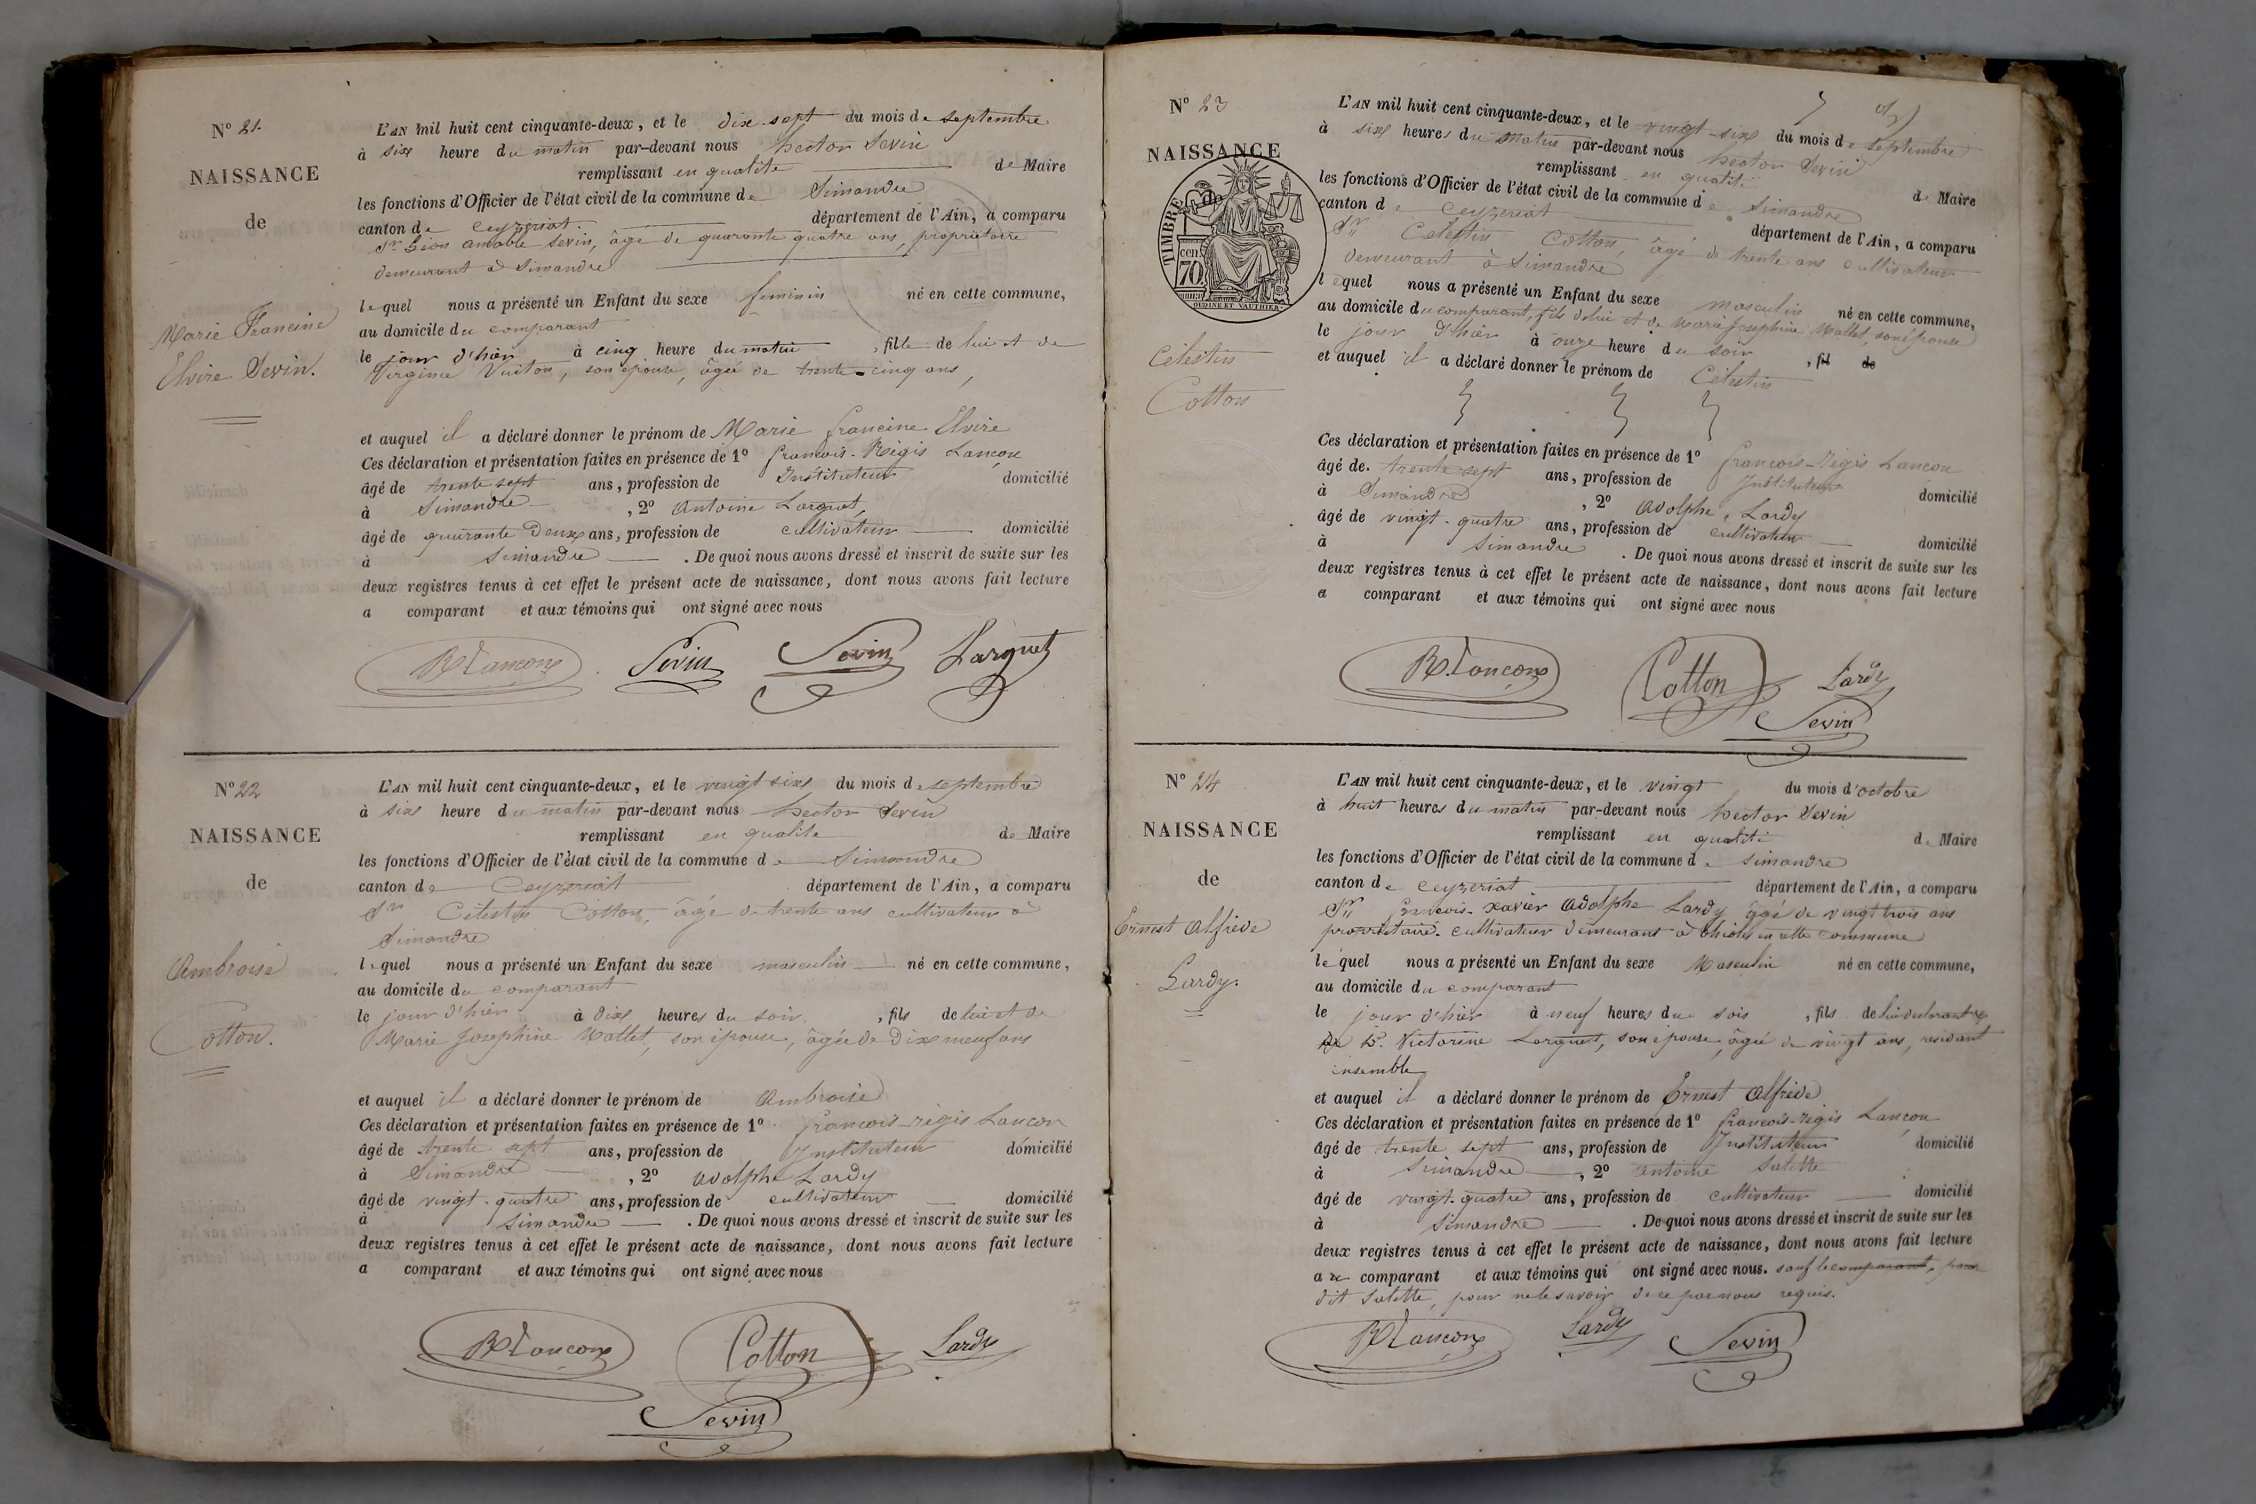 N° 21.
NAISSANCE
de
Marie Francine
Elvire Sevin.
L'AN mil huit cent cinquante-deux, et le dix sept du mois de septembre
à six heure du matin par-devant nous hector Sevin
remplissant en qualite de Maire
les fonctions d'Officier de l'état civil de la commune de Simandre
canton de Ceyzeriat département de l'Ain, a comparu
Sr Léon amable Sevin, âgé de quarante quatre ans, propriétaire
demeurant à Simandre
lequel nous a présenté un Enfant du sexe feminin né en cette commune,
au domicile du comparant
le jour d'hier à cinq heure du matin, fille de lui et de
Virginie Vuiton, son épouse, âgée de trente-cinq ans,
et auquel il a déclaré donner le prénom de Marie francine Elvire
Ces déclaration et présentation faites en présence de 1° francois-Régis Lançon
âgé de trente sept ans, profession de Instituteur domicilié
à Simandre, 2° Antoine Larguet,
âgé de quarante Deux ans, profession de cultivateur domicilié
à Simandre. De quoi nous avons dressé et inscrit de suite sur les
deux registres tenus à cet effet le présent acte de naissance, dont nous avons fait lecture
a comparant et aux témoins qui ont signé avec nous
R Lançon Sevin Sevin Larguet
N° 22
NAISSANCE
de
Ambroise
Cotton.
L'AN mil huit cent cinquante-deux, et le vingt six du mois de septembre
à six heure du matin par-devant nous hector Sevin
remplissant en qualite de Maire
les fonctions d'Officier de l'état civil de la commune de Simandre
canton de Ceyzeriat département de l'Ain, a comparu
Sr Célestin Cotton, âgé de trente ans cultivateur à
Simandre
lequel nous a présenté un Enfant du sexe masculin né en cette commune,
au domicile du comparant
le jour d'hier à dix heures du soir, fils de lui et de
Marie Josephine Mallet, son épouse, âgée de Dix neuf ans
et auquel il a déclaré donner le prénom de Ambroise
Ces déclaration et présentation faites en présence de 1° francois-régis Lancon
âgé de trente sept ans, profession de Instituteur domicilié
à Simandre, 2° adolphe Lardy
âgé de vingt-quatre ans, profession de cultivateur domicilié
à Simandre. De quoi nous avons dressé et inscrit de suite sur les
deux registres tenus à cet effet le présent acte de naissance, dont nous avons fait lecture
a comparant et aux témoins qui ont signé avec nous
R Lançon Cotton Lardy
Sevin
N° 23
NAISSANCE
de
TIMBRE
cen. 70
Célestin
Cotton
L'AN mil huit cent cinquante-deux, et le vingt-six du mois de septembre
à six heures du matin par-devant nous hector Sevin
remplissant en qualité de Maire
les fonctions d'Officier de l'état civil de la commune de Simandre
canton de Ceyzeriat département de l'Ain, a comparu
Sr Célestin Cotton, âgé de trente ans cultivateur
demeurant à Simandre
lequel nous a présenté un Enfant du sexe masculin né en cette commune,
au domicile du comparant, fils de lui et de Marie Josephine Mallet, son épouse
le jour d'hier à onze heure du soir, fil de
et auquel il a déclaré donner le prénom de Célestin
Ces déclaration et présentation faites en présence de 1° francois-Régis Lancon
âgé de trente sept ans, profession de Instituteur domicilié
à Simandre, 2° adolphe Lardy
âgé de vingt-quatre ans, profession de cultivateur domicilié
à Simandre. De quoi nous avons dressé et inscrit de suite sur les
deux registres tenus à cet effet le présent acte de naissance, dont nous avons fait lecture
a comparant et aux témoins qui ont signé avec nous
R Lançon Cotton Lardy
Sevin
N° 24
NAISSANCE
de
Ernest Alfrède
Lardy.
L'AN mil huit cent cinquante-deux, et le vingt du mois d'octobre
à huit heures du matin par-devant nous hector Sevin
remplissant en qualité de Maire
les fonctions d'Officier de l'état civil de la commune de Simandre
canton de Ceyzeriat département de l'Ain, a comparu
Sr francois-xavier Adolphe Lardy âgé de vingt trois ans
propriétaire-cultivateur demeurant à en cette commune
lequel nous a présenté un Enfant du sexe Masculin né en cette commune,
au domicile du comparant
le jour d'hier à neuf heures du soir, fils de lui
Victorine Larguet, son épouse, âgée de vingt ans, residant
ensemble
et auquel il a déclaré donner le prénom de Ernest Alfrède
Ces déclaration et présentation faites en présence de 1° francois-régis Lançon
âgé de trente sept ans, profession de Instituteur domicilié
à Simandre, 2° antoine Salette
âgé de vingt-quatre ans, profession de cultivateur domicilié
à Simandre. De quoi nous avons dressé et inscrit de suite sur les
deux registres tenus à cet effet le présent acte de naissance, dont nous avons fait lecture
a comparant et aux témoins qui ont signé avec nous. sauf le comparant,
dit Salette, pour ne le savoir de ce par nous requis.
R Lançon Lardy Sevin